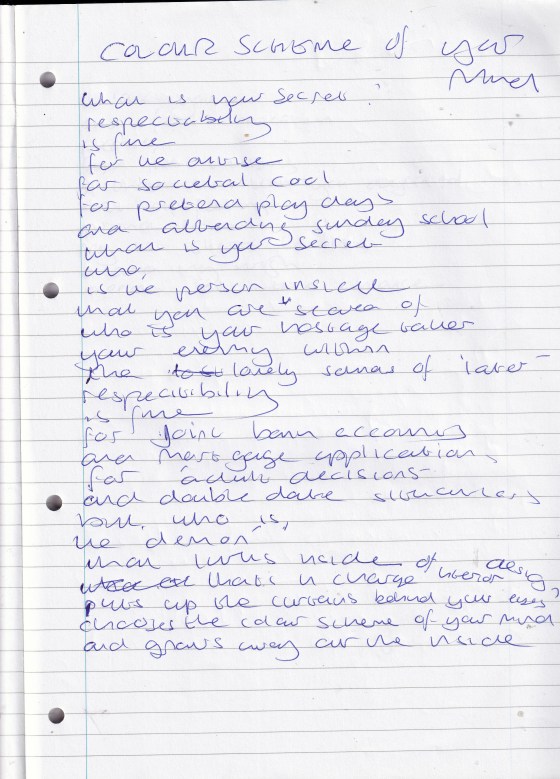 COLOUR SCHEME of your
Mind
what is your secret?
respectability
is fine
for the
for societal
for pretend play days
and attending sunday school
what is your secret
who,
is the person inside
that you are scared of
who is your hostage taker
your enemy within
the lonely of 'later'
respectability
is fine
for joint bank accounts
and mortgage applications
for 'adult decisions'
and double date situations
but, who is,
the demon
that lurks inside of
that's in charge of interior design
puts up the curtains behind your eyes?
chooses the colour scheme of your mind
and gnaws away at the inside